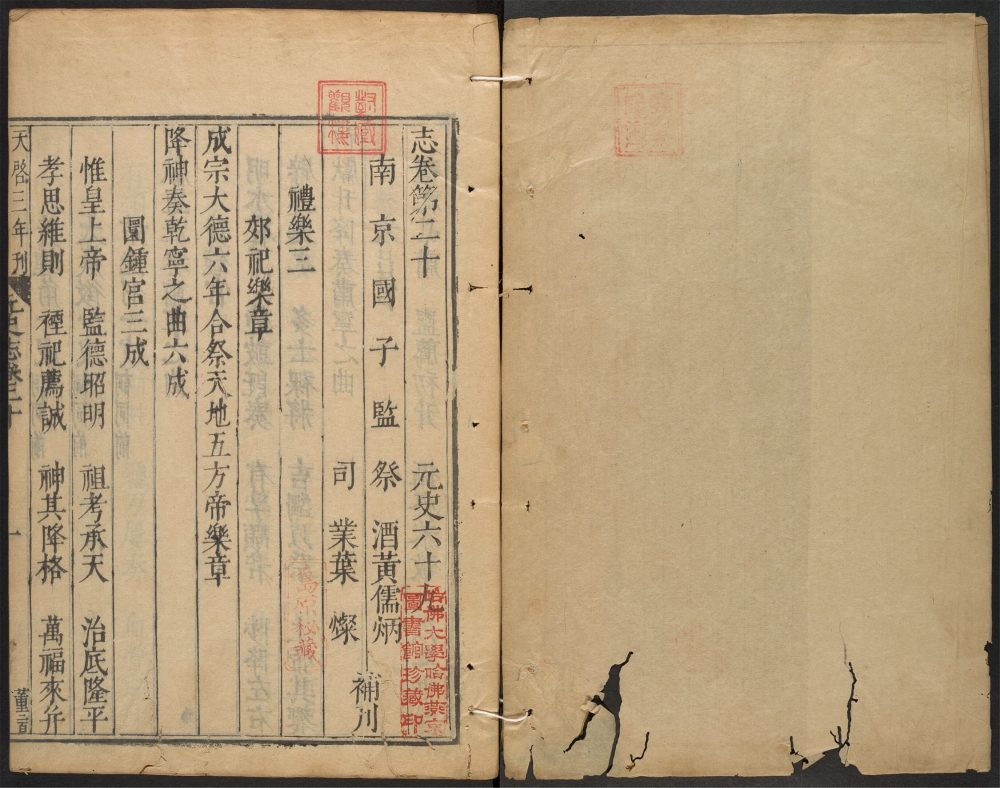 志卷第二十 元史六十九
南京國子監祭酒黃儒炳
司業葉燦 補刊
禮樂三
郊祀樂章
成宗大德六年合祭天地五方帝樂章
降神奏乾寧之曲六成
圜鍾宮三成
惟皇上帝 監德昭明 祖考承天 治底隆平
孝思維則 禋祀薦誠 神其降格 萬福來并
天啓三年刊 元史志卷二十 一
哈佛大學哈佛燕京
圖書館珍藏印